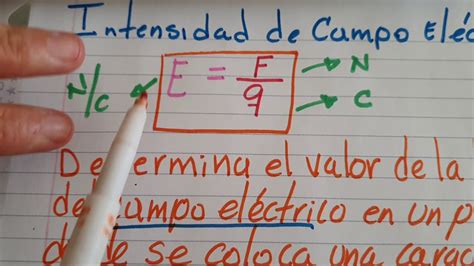 Intensidad de Campo Eléc
N/C E = F/q → N
→ C
Determina el valor de la
del campo eléctrico en un p
se coloca una carga